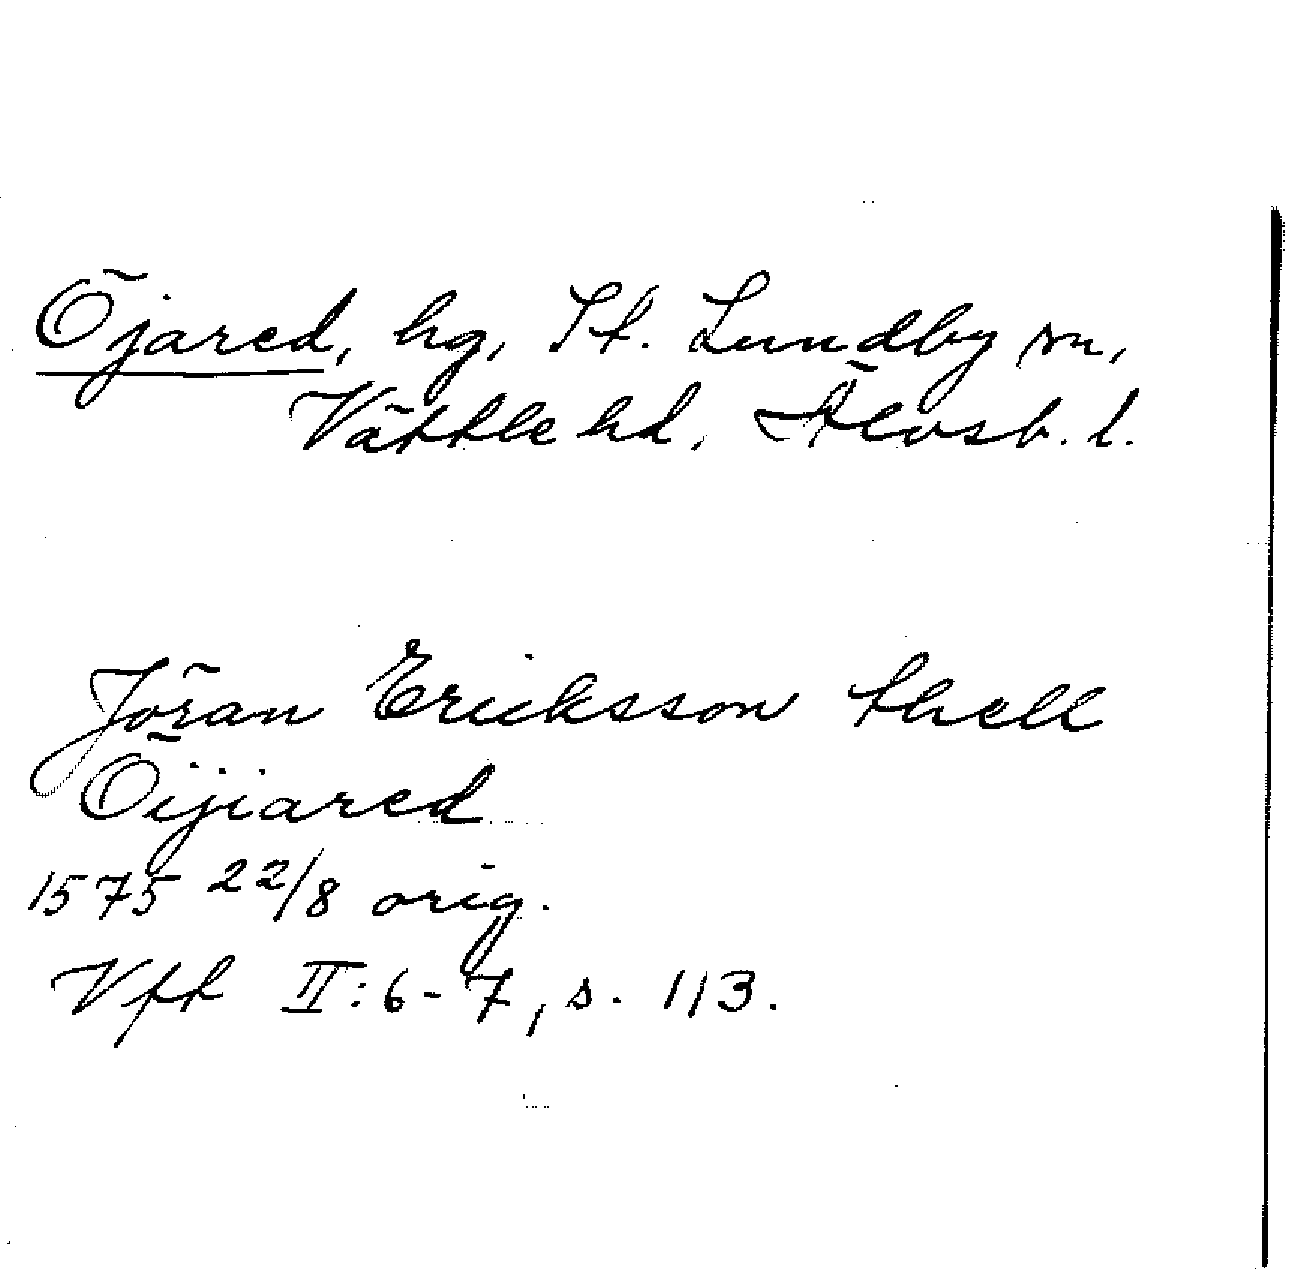 Öjared, hg, St. Lundby sn,
Vättle hd, Älvsb. l.
Jöran Ericksson thell
Öijiared
1575 22/8 orig.
Vft II: 6-7, s. 113.